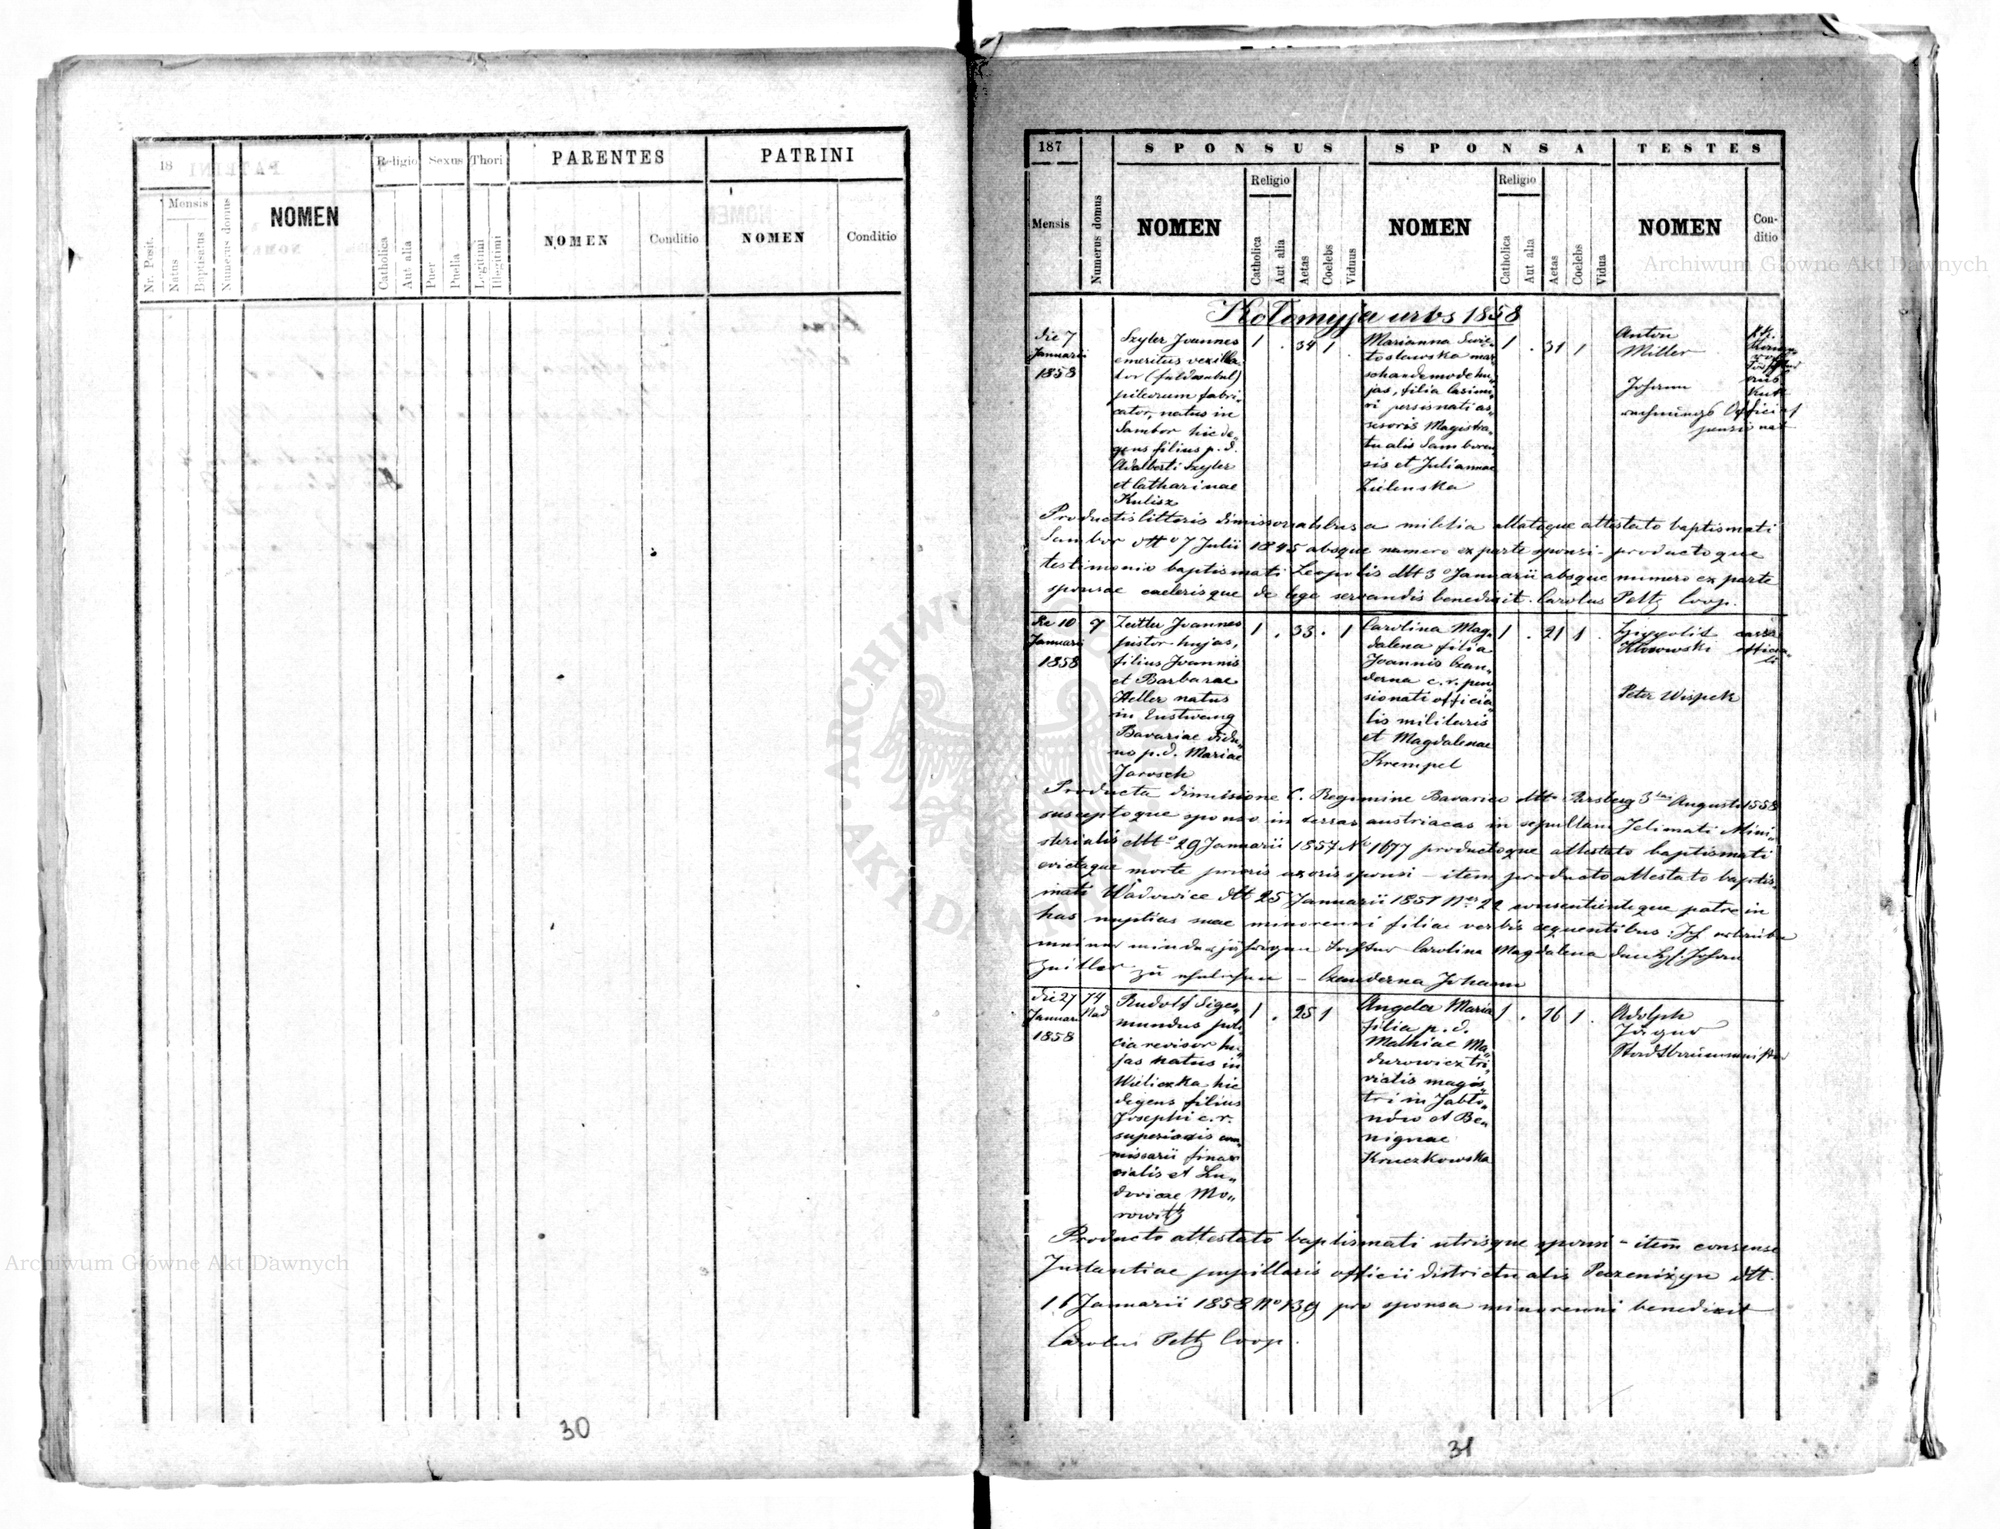 18
Mensis
Nr. Posit.
Natus
Baptisatus
Numerus domus
NOMEN
Religio
Catholica
Aut alia
Sexus
Puer
Puella
Thori
Legitimi
Illegitimi
PARENTES
NOMEN
Conditio
PATRINI
NOMEN
Conditio
30
187
Mensis
Numerus domus
SPONSUS
NOMEN
Religio
Catholica
Aut alia
Aetas
Coelebs
Viduus
SPONSA
NOMEN
Religio
Catholica
Aut alia
Aetas
Coelebs
Vidua
TESTES
NOMEN
Con-
ditio
Kołomyja urbs 1858
die 7
Januarii
1858
Szyler Joannes
emeritus vexilla
tor (feldwebel)
pileorum fabri-
cator, natus in
Sambor hic de-
gens filius p. d.
Adalberti Szyler
et Catharinae
Kulisz
1 . 34 1 .
Marianna Swie-
tosławska mar
schandemode hu-
jas, filia Casimi-
ri persisnati as-
sisoris Magistra-
tualis Samboren
sis et Juliannae
Zielenska
1 . 31 1
Anton
Miller
Johann
rechnungs Official
pensionat
Productis litteris dimissorialibus a militia allatoque attestato baptismati
Sambor dtto 7 Julii 1845 absque numero ex parte sponsi - productoque
testimonio baptismati Leopolis dtt 3 Januarii absque numero ex parte
sponsae caeterisque de lege servandis benedixit. Carolus Peltz Coop.
die 10
Januarii
1858
9
Zeitler Joannes
pistor hujas,
filius Joannis
et Barbarae
Heller natus
in Enstweng
Bavariae vidu-
us p. d. Mariae
Jarosch
1 . 33 . 1
Carolina Mag-
dalena filia
Joannis Czen-
derna c. r. pen-
sionati officia-
lis militaris
et Magdalenae
Krempel
1 . 21 1 .
Hippolit
Kłosowski
Peter Wispek
Producta dimissione C. Regimine Bavarico dtto Parsberg 3 tia Augusti 1858
susceptoque sponso in terras austriacas in sepultam Intimati Mini-
sterialis dtto 29 Januarii 1857 No 1677 productoque attestato baptismati
evictaque morte prioris uxoris sponsi - item producto attestato baptis-
mati Wadowice dtt 25 Januarii 1851 Nro 22 consentienteque patre in
has nuptias suae minorenni filiae verbis sequentibus: Ich erlaube
meiner minderjährigen Tochter Carolina Magdalena den H. Johan
Zeitler zu ehelichen - Czenderna Johann
die 27
Januarii
1858
74
Nad
Rudolf Siges-
mundus poli-
cia revisor hu-
jas natus in
Wieliczka hic
degens filius
Josephi c. r.
superioris com
missarii finan
cialis et Lu-
dovicae Mo-
rowitz
1 . 25 1
Angela Maria
filia p. d.
Mathiae Ma-
durowicz tri-
vialis magis
tri in Jabło-
nów et Be-
nignae
Kruczkowska
1 . 16 1 .
Adolph
Jägner
Stadtbaumeister
Producto attestato baptismati utrisque sponsi - item consense
Instantiae pupillaris officii districtualis Peczeniżyn dtt.
11 Januarii 1858 No 139 pro sponsa minorenni benedixit
Carolus Peltz Coop.
31
Archiwum Główne Akt Dawnych
Archiwum Główne Akt Dawnych